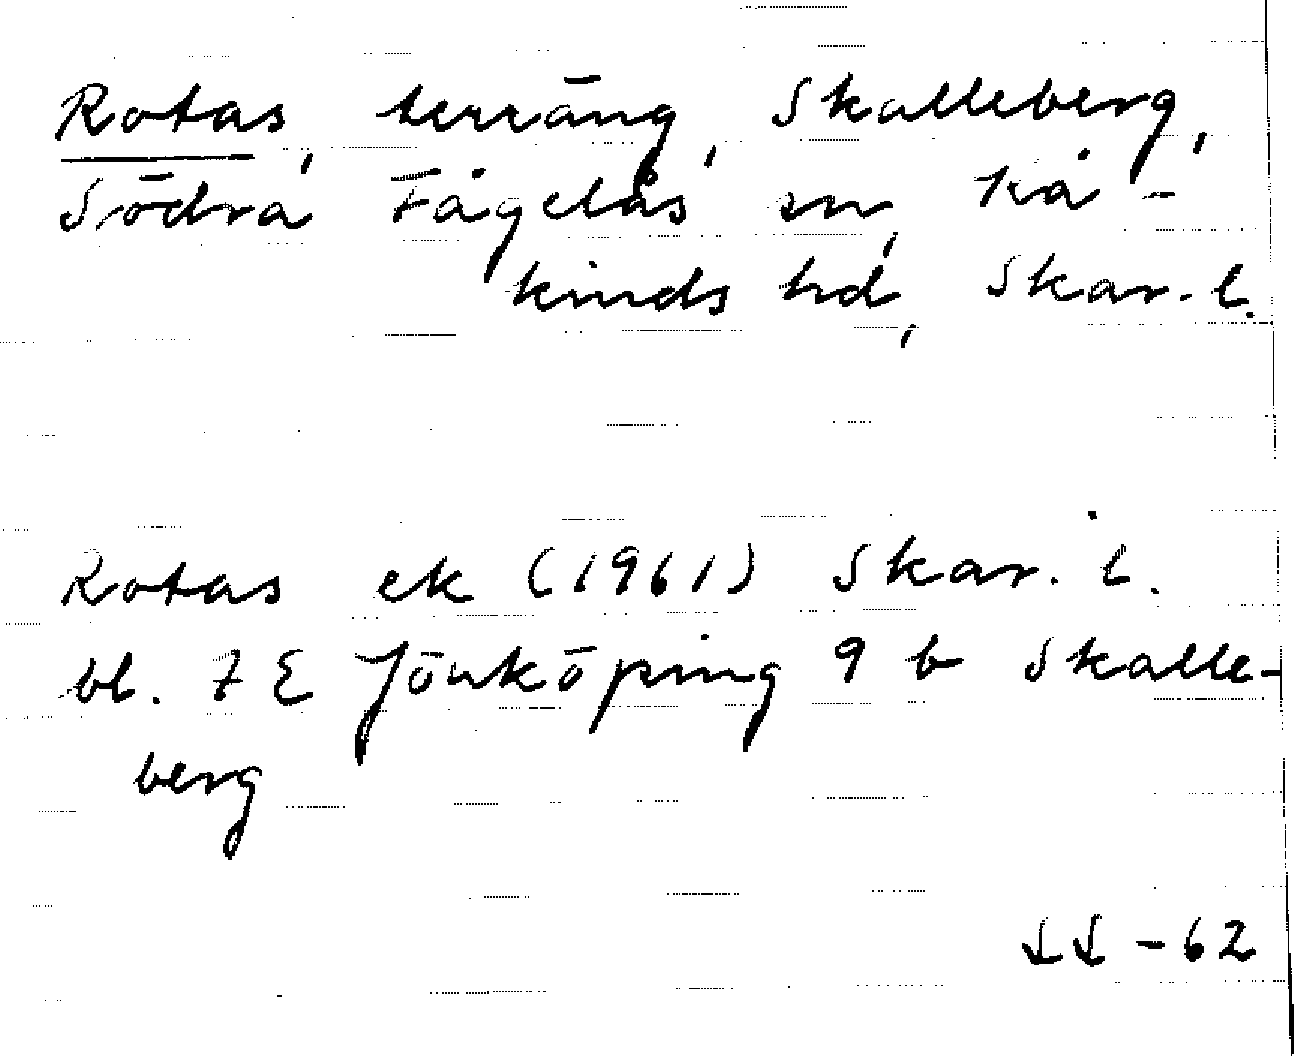 Rotas, terräng, Skalleberg,
Södra Fågelås sn, Kå-
kinds hd, Skar. l.
Rotas ek (1961) Skar. l.
bl. 7 E Jönköping 9 b Skalle-
berg
SS -62